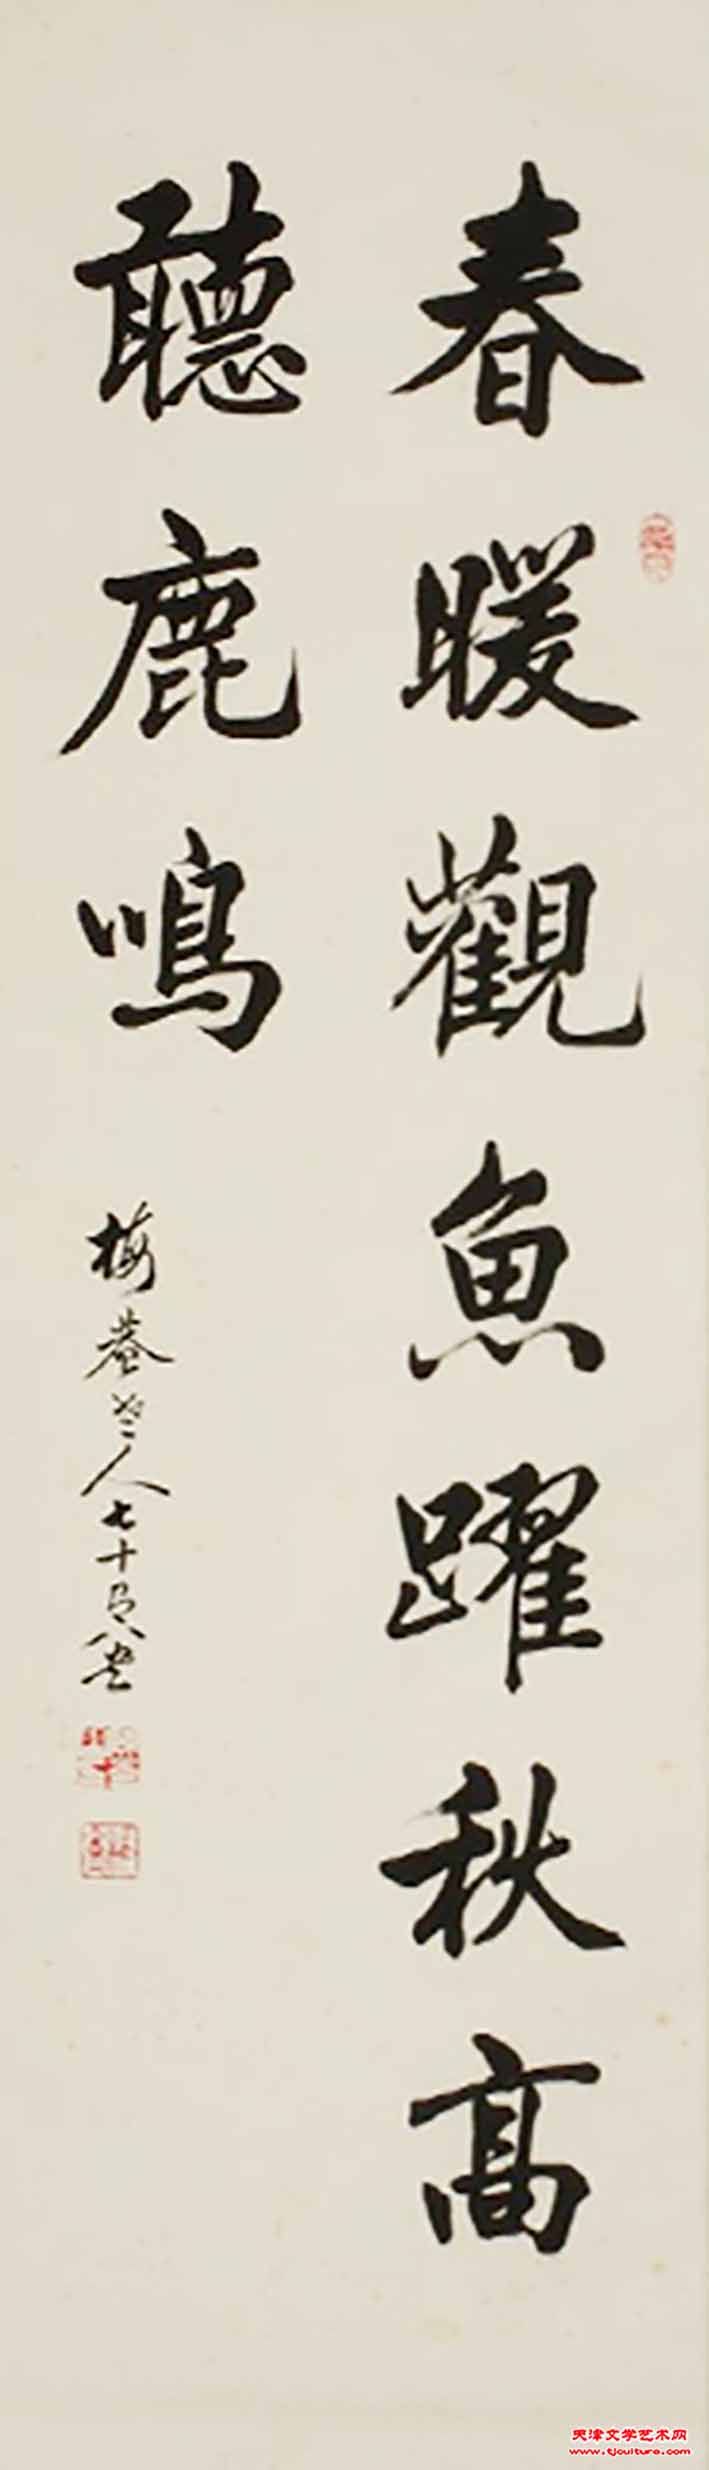 春暖觀魚躍秋高
聽鹿鳴
梅菴老人七十又八書
天津文学艺术网
www.tjculture.com